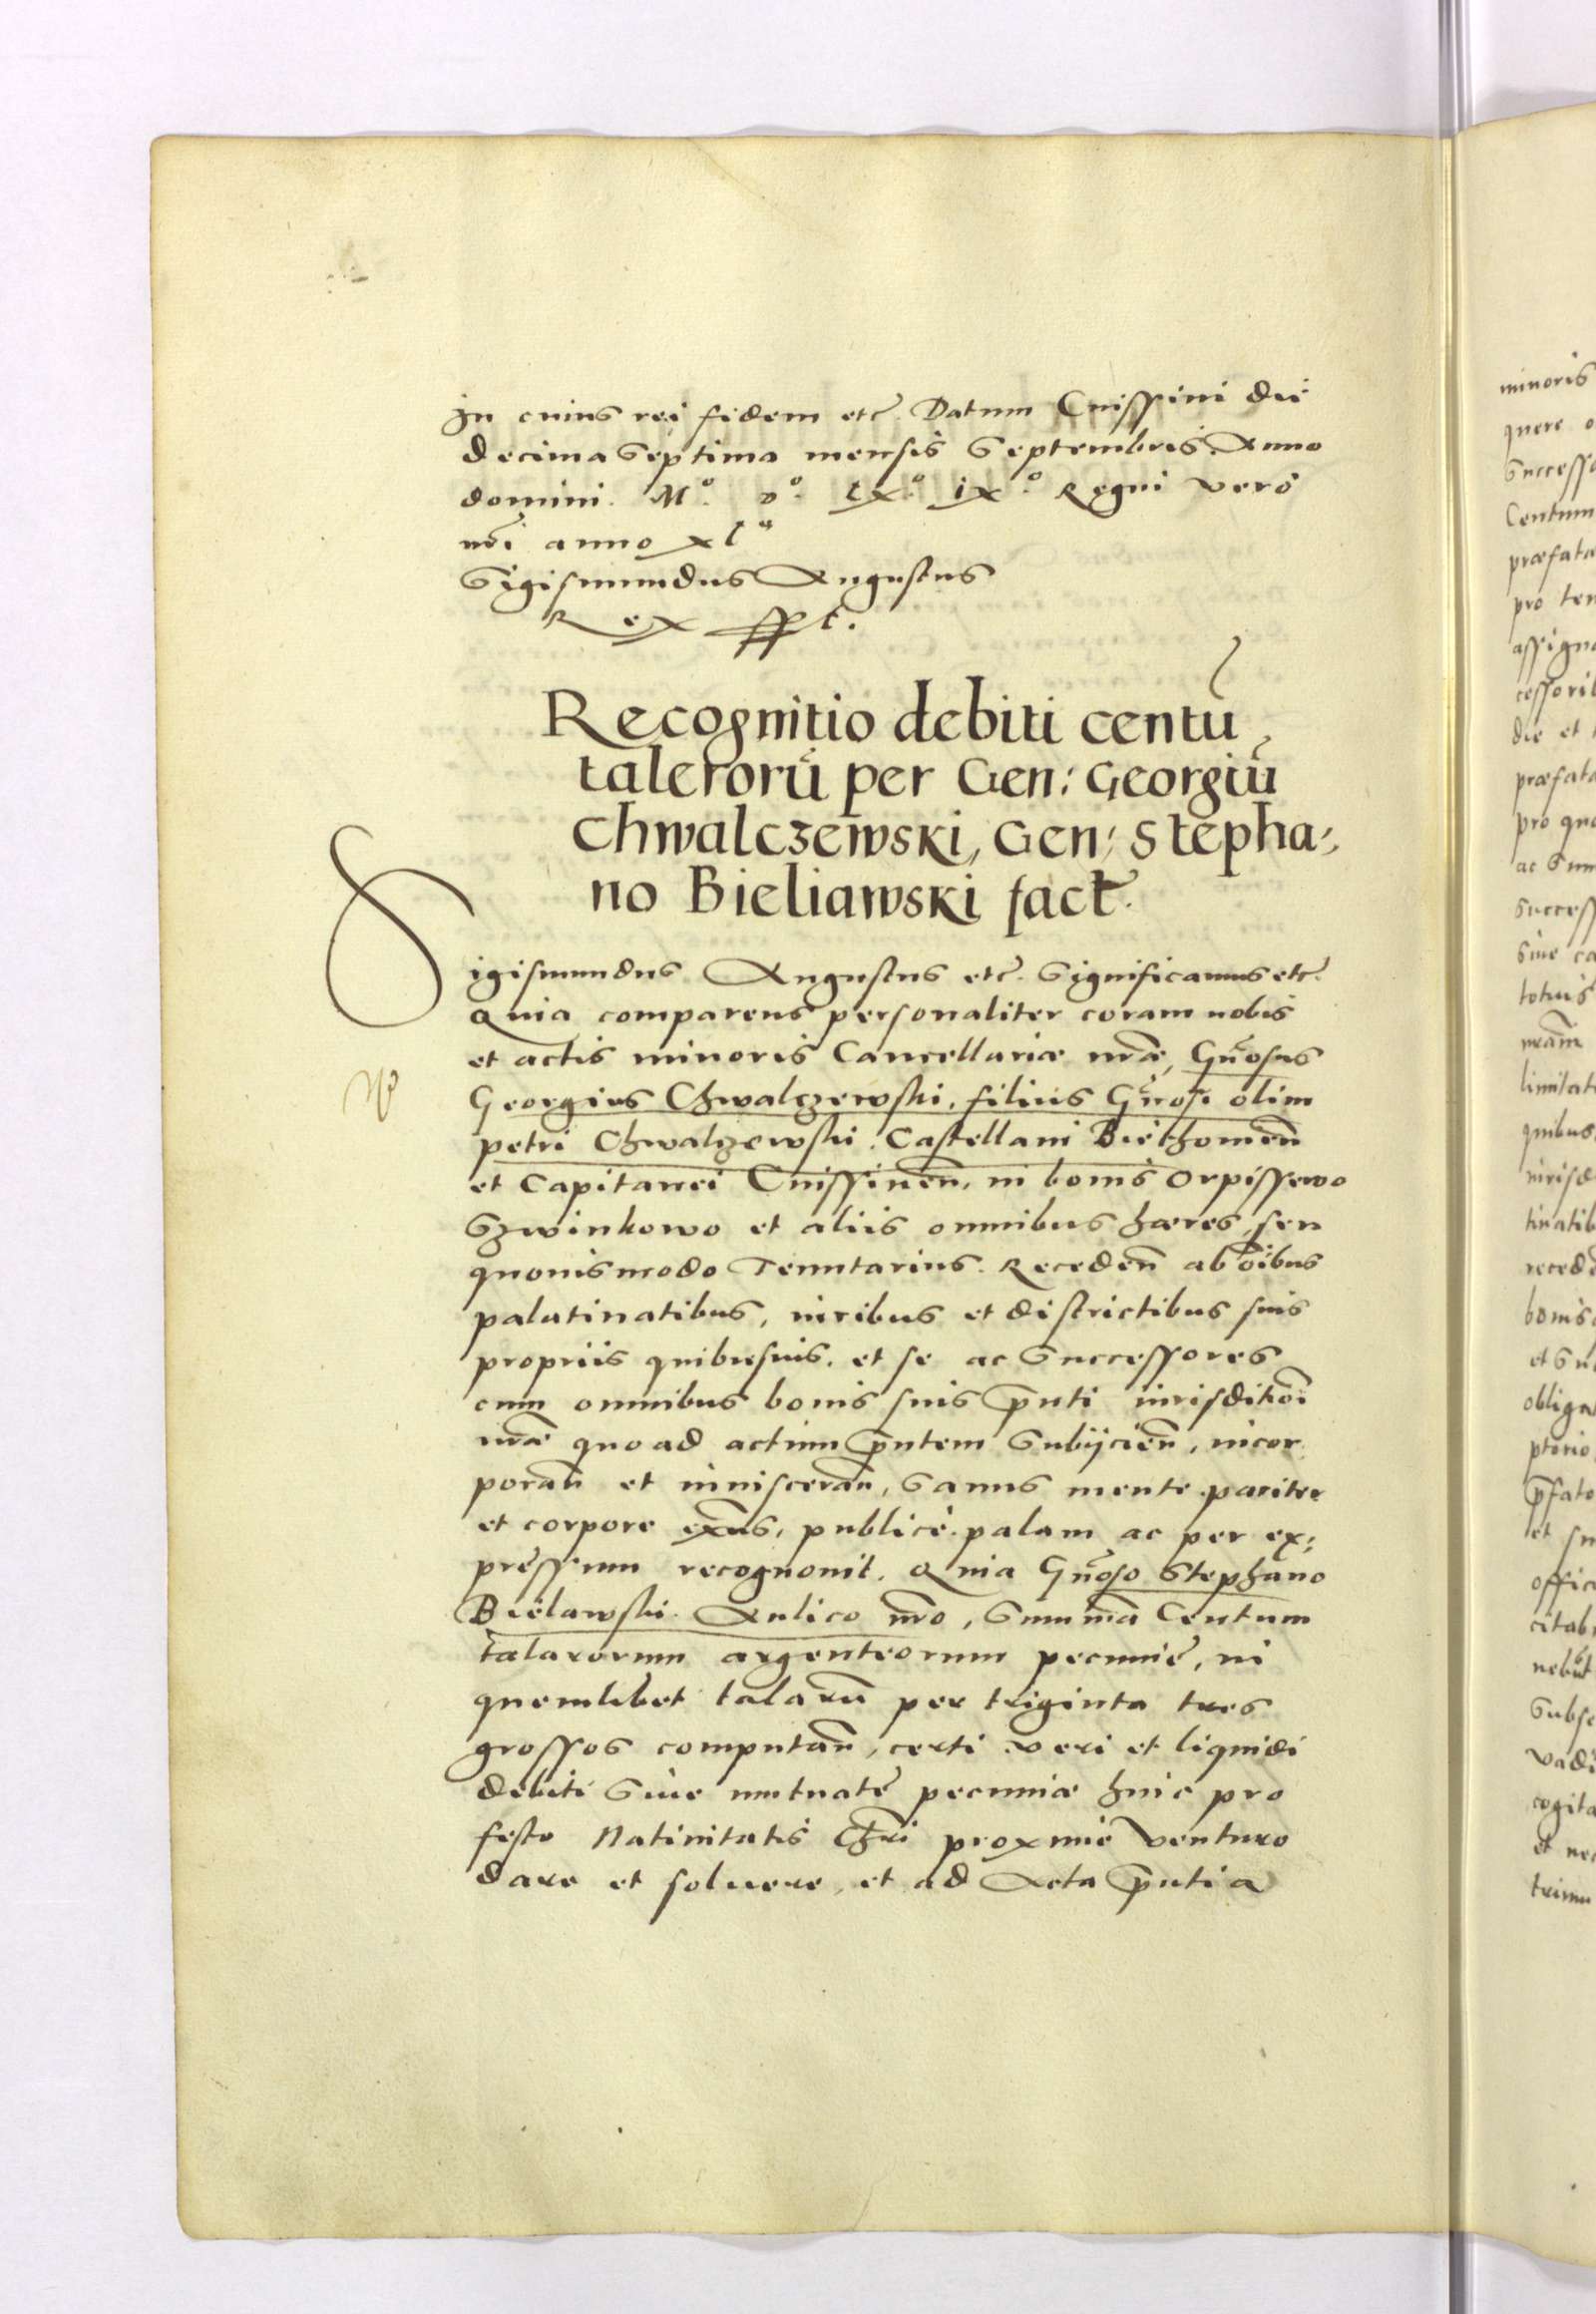 In cuius rei fidem etc̃. Datum Cnissini die
decima Septima mensis Septembris. Anno
domini. Mº. Dº. LXº. ixº. Regni vero
nr̃i anno xlº
Sigismundus Augustus
Rex sst.
Recognitio debiti centũ
talerorũ per Gen: Georgiũ
Chwalczewski, Gen: Stepha-
no Bieliawski fact̃.
Sigismundus Augustus etc̃. Significamus etc̃.
Quia comparens personaliter coram nobis
et actis minoris Cancellariæ nr̃æ, Gñosus
Georgius Chwalczewski, filius Gñosi olim
petri Chwalczewski Castellani Biechomeñ
et Capitanei Cnissineñ, in bonis Orpissewo
Szwinkowo et aliis omnibus hæres, seu
quouismodo Tenutarius. Recedeñ ab oĩbus
palatinatibus, iuribus et districtibus suis
propriis quibusuis, et se ac Successores
cum omnibus bonis suis p̃nti iurisditioĩ
nr̃æ quo ad actum p̃ntem Subijcieñ, incor
porañ et inuiscerañ, Sanus mente pariter
et corpore exñs, publice palam ac per ex-
pressum recognouit. Quia Gñoso Stephano
Bielawski Aulico nr̃o, Summã Centum
talarorum argenteorum pecuniæ, in
quemlibet talarũ per triginta tres
grossos computañ, certi veri et liquidi
debiti Siue mutuatæ pecuniæ huic pro
festo Natiuitatis Chr̃i proxime venturo
dare et soluere, et ad Acta p̃ntia
minoris
quere
Successo
Centum
præfata
pro ten
assigna
cessorib
die et
præfata
pro quo
ac Sum
Success
Siue ca
totius
nr̃am
limitat
quibus
iurisd
tinatib
recede
bonis
et Su
obliga
ptorio
p̃fato
et su
offic
citab
nebũt
Subse
vadi
cogita
et nec
trimu